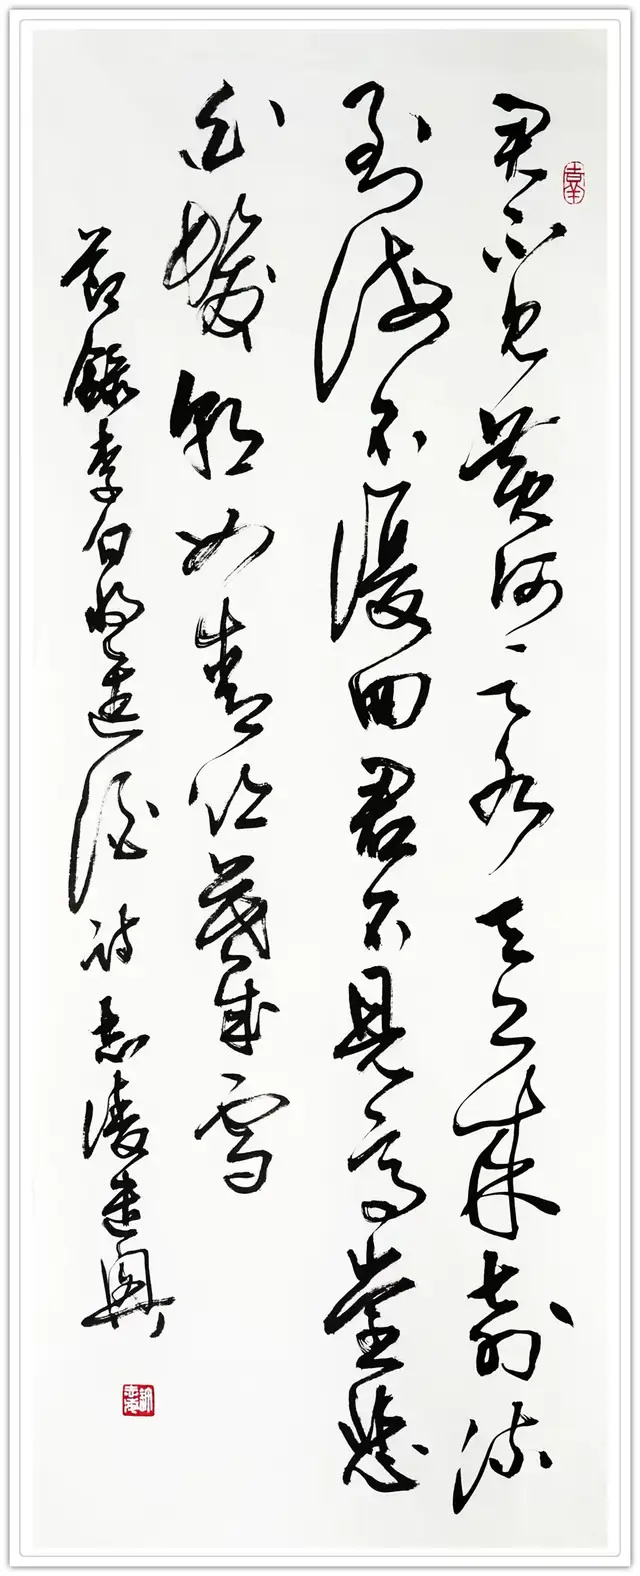 君不見黃河之水天上來奔流
到海不復回君不見高堂悲
白髮朝如青絲暮成雪
節錄李白將進酒詩